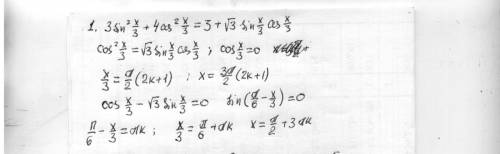 1. 3 sin² x/3 + 4 cos² x/3 = 3 + √3 sin x/3 cos x/3
cos² x/3 = √3 sin x/3 cos x/3 ; cos x/3 = 0
x/3 = π/2 (2k+1) ; x = 3π/2 (2k+1)
cos x/3 − √3 sin x/3 = 0 sin(π/6 − x/3) = 0
π/6 − x/3 = πk ; x/3 = π/6 + πk x = π/2 + 3πk